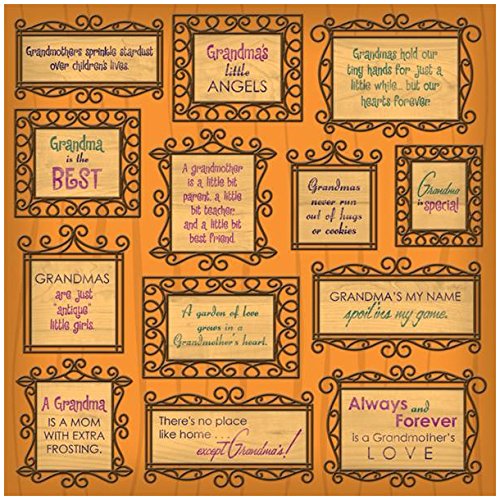 Grandmothers sprinkle stardust
over children's lives.
Grandma's
little
ANGELS
Grandmas hold our
tiny hands for just a
little while... but our
hearts forever.
Grandma
is the
BEST
A grandmother
is a little bit
parent, a little bit
teacher,
and a little bit
best friend.
Grandmas
never run
out of hugs
or cookies
Grandma
is special!
GRANDMAS
are just
"antique"
little girls.
A garden of love
grows in a
Grandmother's heart.
GRANDMA'S MY NAME
spoiling my game.
A Grandma
IS A MOM
WITH EXTRA
FROSTING.
There's no place
like home . . .
except Grandma's!
Always and
Forever
is a Grandmother's
LOVE